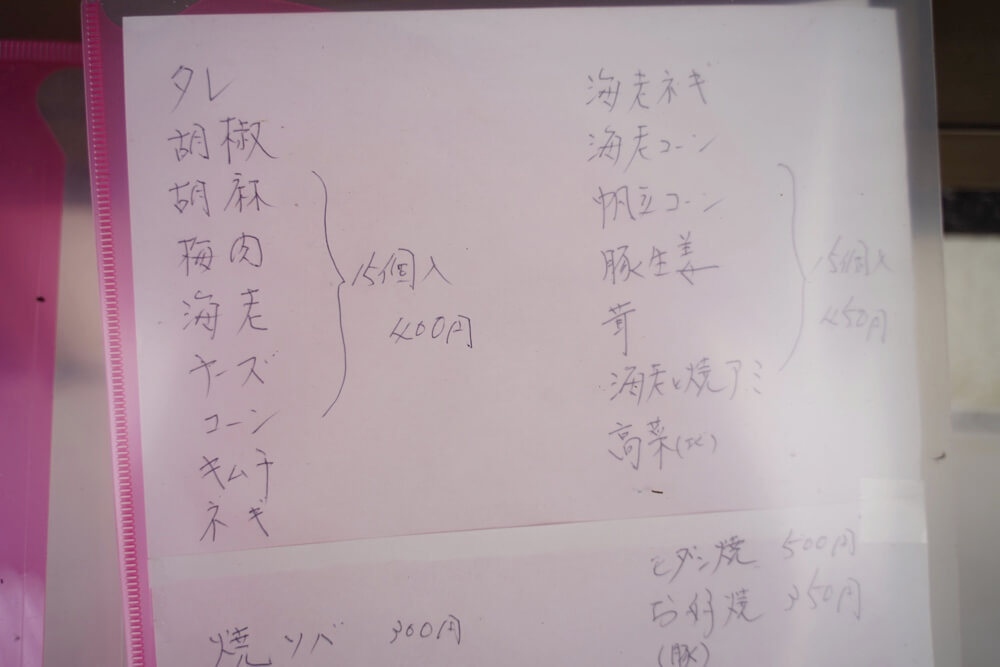 タレ
胡椒
胡麻
梅肉
海老
チーズ
コーン
キムチ
ネギ
15個入
400円
海老ネギ
海老コーン
帆立コーン
豚生姜
茸
海老と焼アミ
高菜
15個入
450円
モダン焼 500円
お好焼 350円
(豚)
焼ソバ 300円